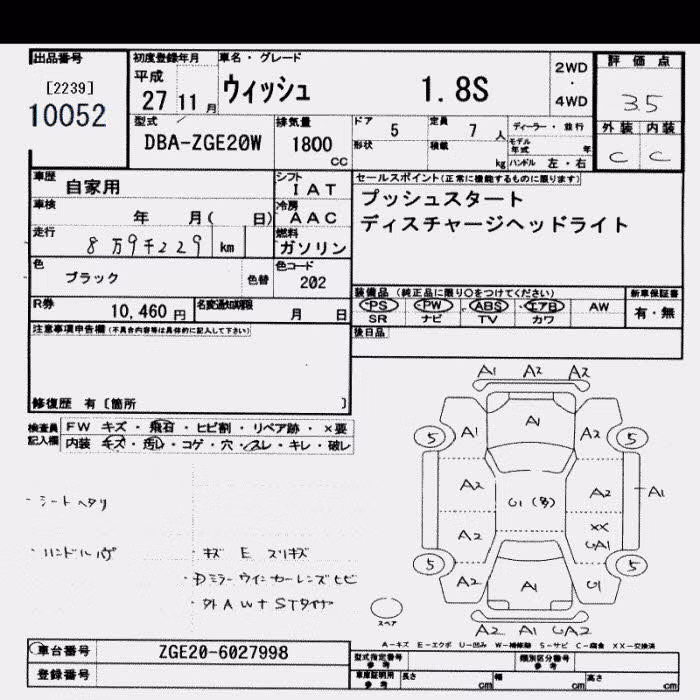 出品番号
[2239]
10052
初度登録年月
平成
27 11 月
車名・グレード
ウィッシュ 1.8S
2WD
・
4WD
評価点
3.5
外装 内装
C C
型式
DBA-ZGE20W
排気量
1800
CC
ドア 5
定員 7 人
形状
積載 kg
ディーラー・並行
モデル年式 年
ハンドル 左・右
車歴 自家用
シフト IAT
車検 年 月( 日)
冷房 AAC
走行 8万9千229 km
燃料 ガソリン
色 ブラック 色替
色コード 202
R券 10,460 円
名変通知期限 月 日
セールスポイント(正常に機能するものに限ります)
プッシュスタート
ディスチャージヘッドライト
装備品(純正品に限り○をつけてください)
PS PW ABS エアB AW
SR ナビ TV カワ
新車保証書
有・無
後日品
注意事項申告欄(不具合内容等は具体的に記入して下さい)
修復歴 有〔箇所 〕
検査員記入欄
FW キズ・飛石・ヒビ割・リペア跡・×要
内装 キズ・汚レ・コゲ・穴・スレ・キレ・破レ
・シートヘタリ
・ハンドルハゲ
・キズ E スリキズ
・Dミラーウインカーレンズヒビ
A1 A2 A2
A1 A1 A2
5 5
A2 U1(多) A2 A1
A2 XX
5 5
A2 A1 U1
スペア
A2 A1
A-キズ E-エクボ U-凹み W-補修跡 S-サビ C-腐食 XX-交換済
車台番号 ZGE20-6027998
登録番号
型式指定番号
参考
類別区分番号
参考
車庫証明用
参考
長さ cm
幅 cm
高さ cm